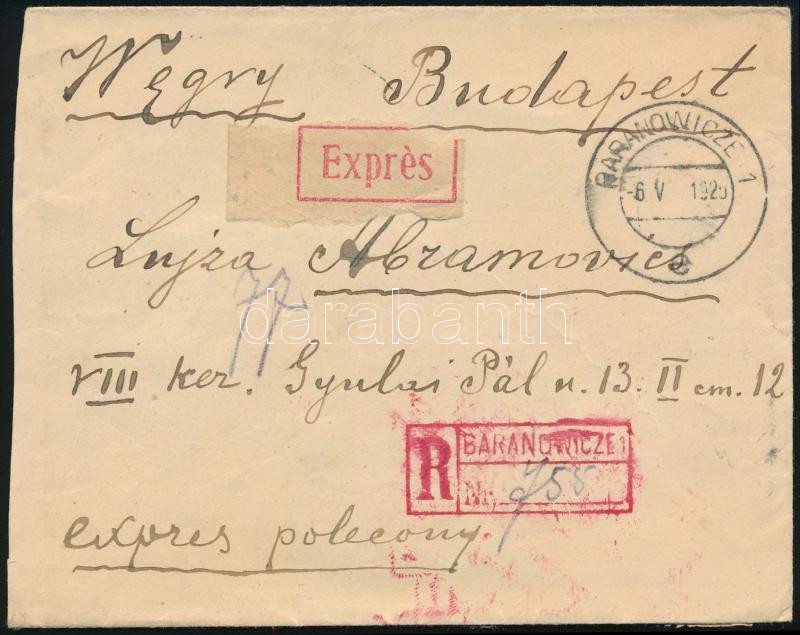 Węgry Budapest
Exprès
BARANOWICZE 1
-6 V 192
e
Lujza Abramovics
77
darabanth
VIII ker. Gyulai Pál u. 13. II em. 12
R BARANOWICZE 1
Nr. 758
expres polecony